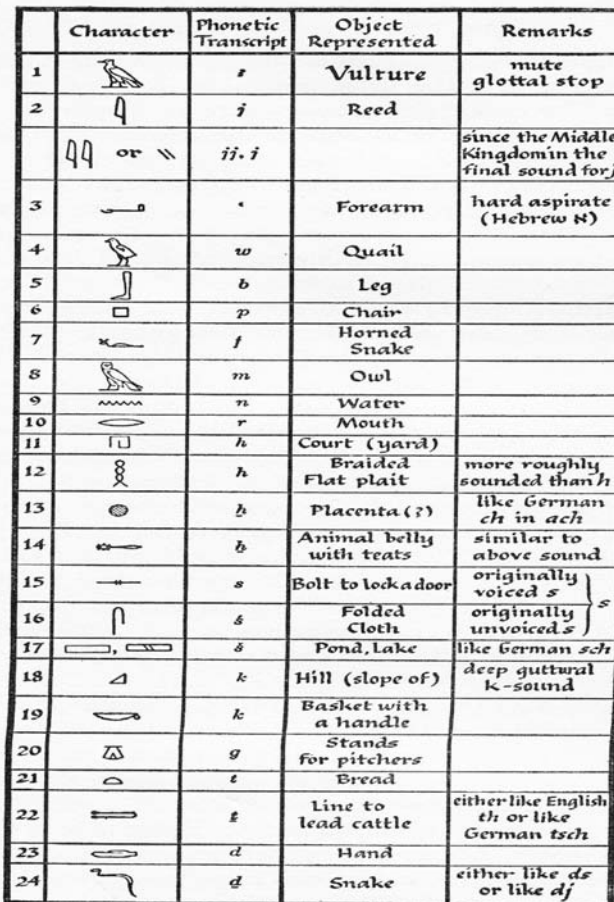 Character Phonetic Transcript Object Represented Remarks
1 Vulture mute glottal stop
2 j Reed
or jj. j since the Middle Kingdom in the final sound for j
3 Forearm hard aspirate (Hebrew א)
4 w Quail
5 b Leg
6 p Chair
7 f Horned Snake
8 m Owl
9 n Water
10 r Mouth
11 h Court (yard)
12 ḥ Braided Flat plait more roughly sounded than h
13 ḫ Placenta (?) like German ch in ach
14 ẖ Animal belly with teats similar to above sound
15 s Bolt to lock a door originally voiced s
s
16 ś Folded Cloth originally unvoiced s
17 š Pond, Lake like German sch
18 k Hill (slope of) deep guttural K-sound
19 k Basket with a handle
20 g Stands for pitchers
21 t Bread
22 ṯ Line to lead cattle either like English th or like German tsch
23 d Hand
24 ḏ Snake either like ds or like dj